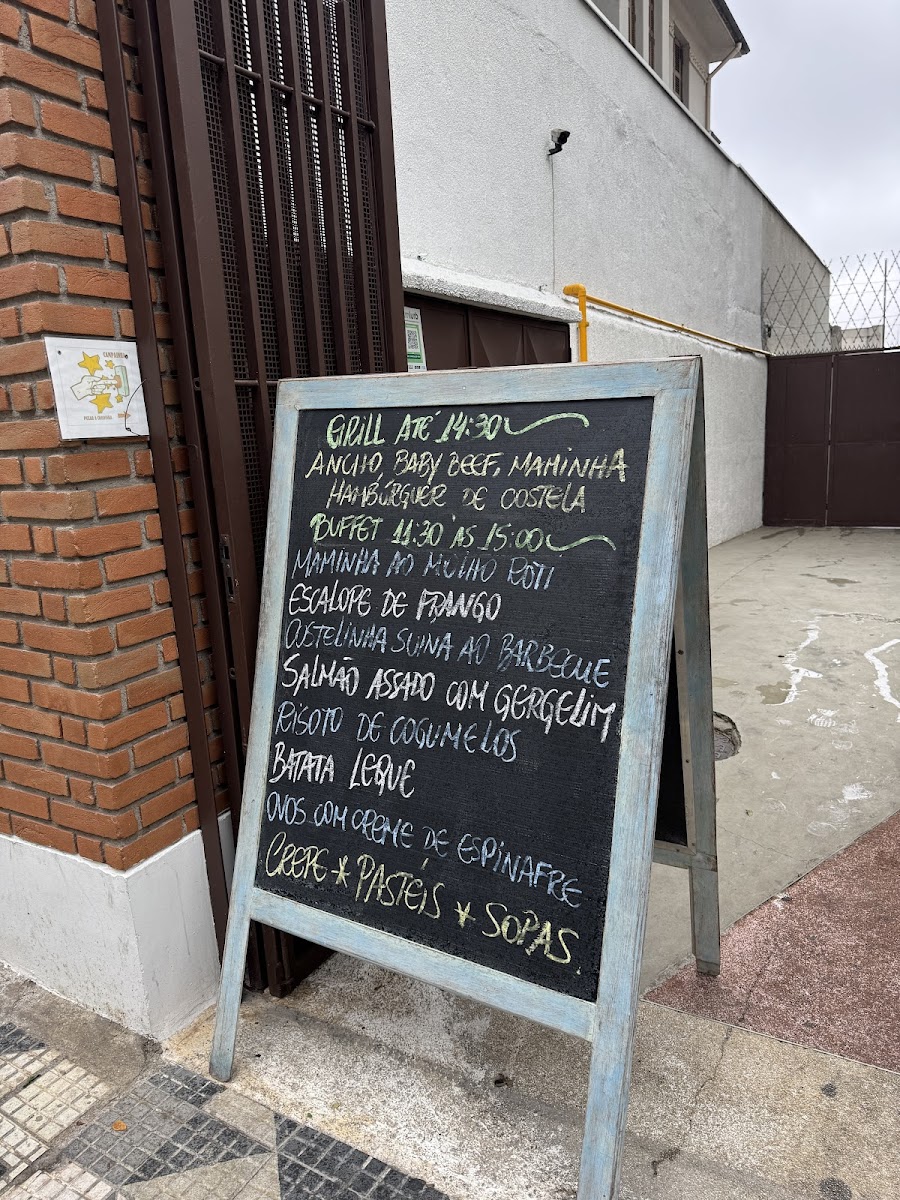 GRILL ATÉ 14:30
ANCHO, BABY BEEF, MAMINHA
HAMBÚRGUER DE COSTELA
BUFFET 11:30 ÀS 15:00
MAMINHA AO MOLHO ROTI
ESCALOPE DE FRANGO
COSTELINHA SUINA AO BARBECUE
SALMÃO ASSADO COM GERGELIM
RISOTO DE COGUMELOS
BATATA LEQUE
OVOS COM CREME DE ESPINAFRE
CREPE * PASTÉIS * SOPAS.
CAMPAINHA